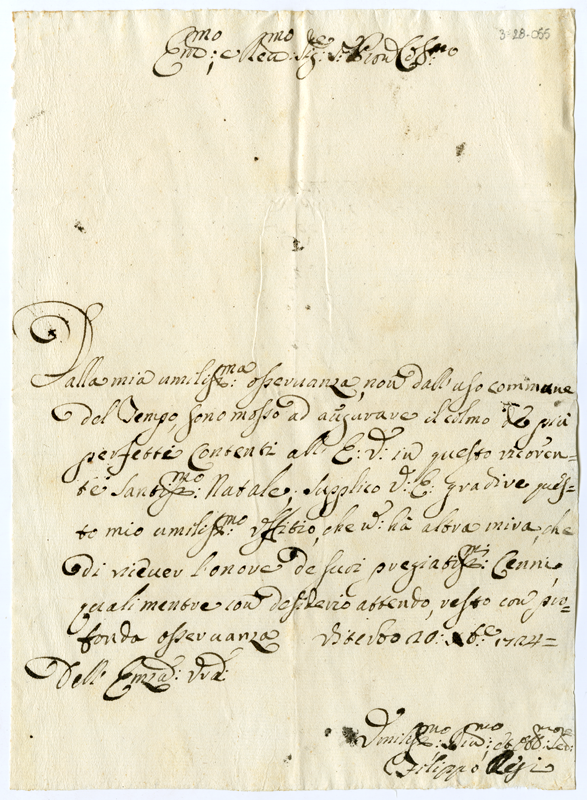 3-28-055
Em:mo e Reu:mo Sig:re
Dalla mia umiliss:ma osseruanza, non dall'uso commune
del Tempo, sono mosso ad augurare il colmo de più
perfetti Contenti all' E: V: in questo ricoren=
te Santiss:mo Natale, supplico V: E: gradire ques=
to mio umiliss:mo offitio, che n: hà altra mira, che
di riceuer l'onore de suoi pregiatiss:mi Cenni,
quali mentre con desiderio attendo, resto con pro=
fonda osseruanza Viterbo 20: Xb:e 1724=
Dell' Emza: Vra:
Vmiliss:mo
Filippo